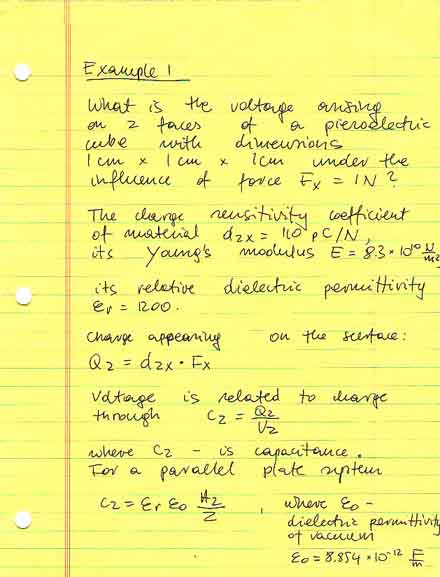 Example 1
What is the voltage arising
on z faces of a piezoelectric
cube with dimensions
1cm × 1cm × 1cm under the
influence of force Fx = 1N?
The charge sensitivity coefficient
of material d2x = 110 pC/N,
its Young's modulus E = 8.3 × 10¹⁰ N/m²
its relative dielectric permittivity
εr = 1200.
Charge appearing on the surface:
Qz = dzx · Fx
Voltage is related to charge
through Cz = Qz/Vz
where Cz - is capacitance.
For a parallel plate system
Cz = εr ε0 Az/z , where ε0 -
dielectric permittivity
of vacuum
ε0 = 8.854 × 10⁻¹² F/m